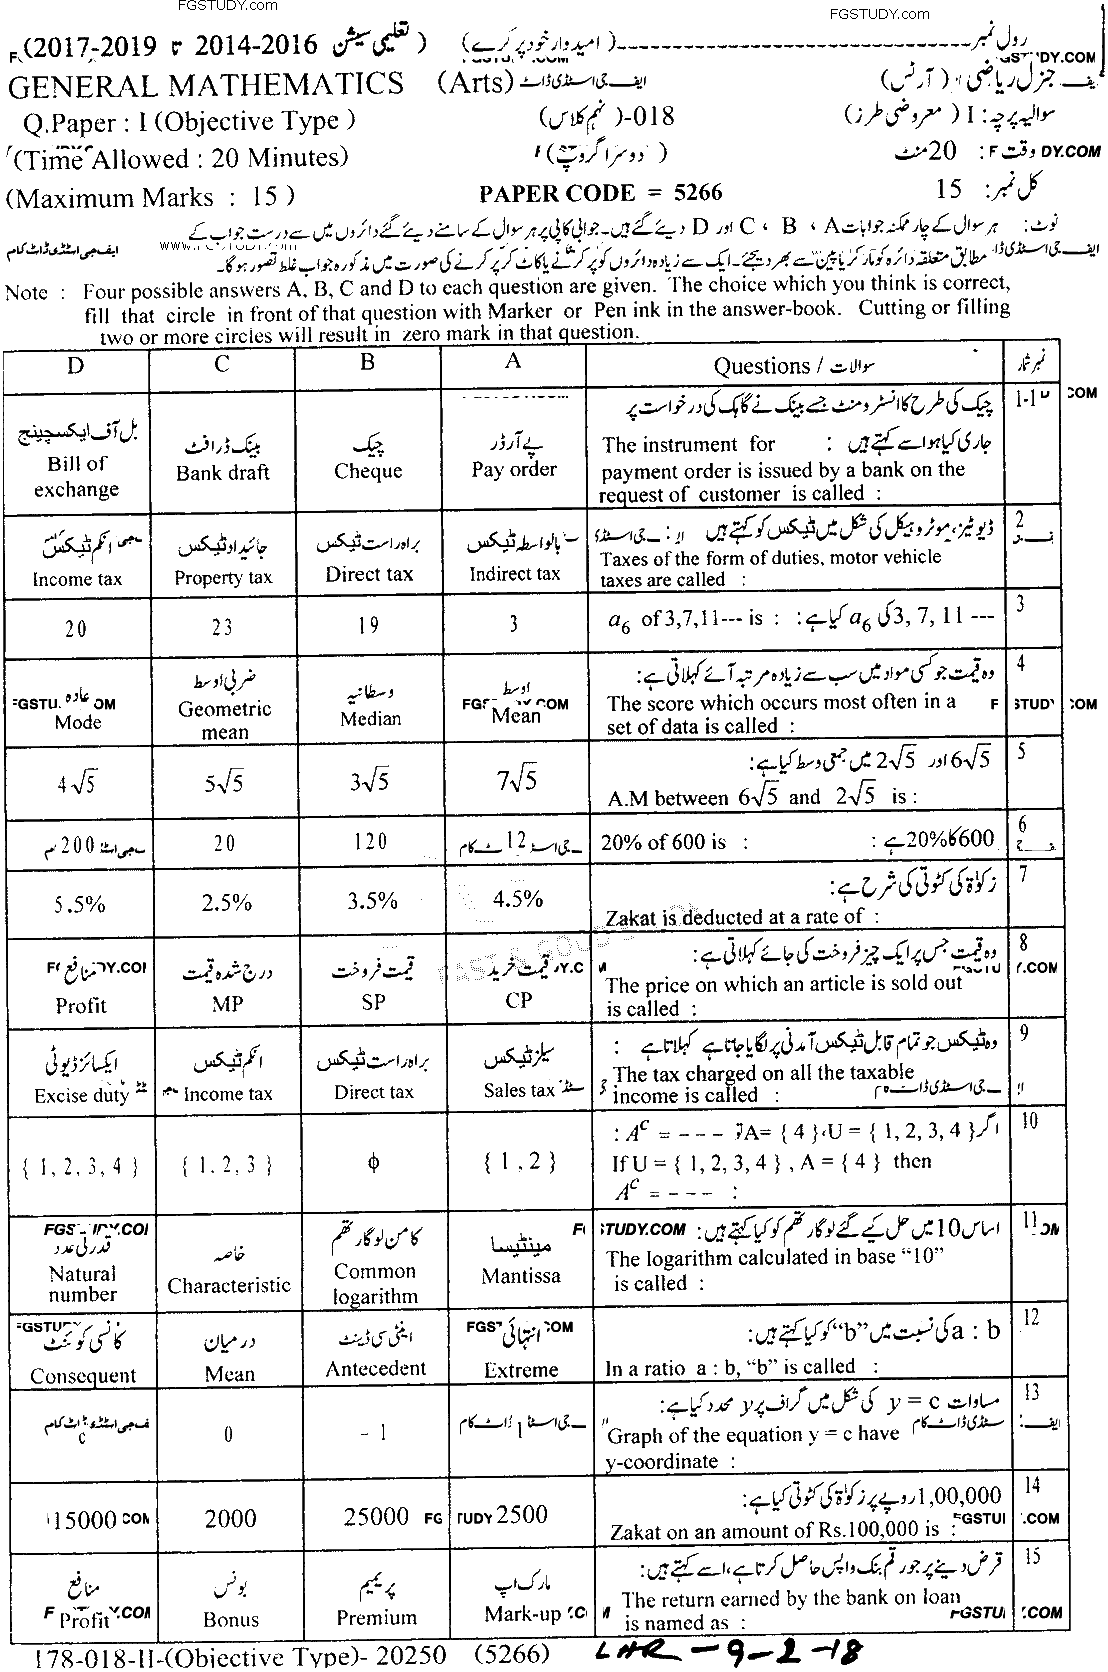 FGSTUDY.com
FGSTUDY.com
رول نمبر ------------ (امیدوار خود پر کرے) (تعلیمی سیشن 2014-2016 تا 2017-2019)
جنرل ریاضی (آرٹس) GENERAL MATHEMATICS (Arts)
سوالیہ پرچہ: I (معروضی طرز) 018-(نہم کلاس) Q.Paper : I (Objective Type )
وقت: 20 منٹ (دوسرا گروپ) (Time Allowed : 20 Minutes)
کل نمبر: 15 PAPER CODE = 5266 (Maximum Marks : 15 )
نوٹ: ہر سوال کے چار ممکنہ جوابات A ، B ، C اور D دیئے گئے ہیں۔ جوابی کاپی پر ہر سوال کے سامنے دیئے گئے دائروں میں سے درست جواب کے
مطابق متعلقہ دائرہ کو مارکر یا پین سے بھر دیجئے۔ ایک سے زیادہ دائروں کو پر کرنے یا کاٹ کر پر کرنے کی صورت میں مذکورہ جواب غلط تصور ہوگا۔
Note : Four possible answers A, B, C and D to each question are given. The choice which you think is correct,
fill that circle in front of that question with Marker or Pen ink in the answer-book. Cutting or filling
two or more circles will result in zero mark in that question.
D C B A Questions / سوالات نمبر شمار
1-1 چیک کی طرح کا انسٹرومنٹ جسے بینک نے گاہک کی درخواست پر
جاری کیا ہو اسے کہتے ہیں :
The instrument for
payment order is issued by a bank on the
request of customer is called :
پے آرڈر
Pay order
چیک
Cheque
بینک ڈرافٹ
Bank draft
بل آف ایکسچینج
Bill of
exchange
2 ڈیوٹیز، موٹر وہیکل کی شکل میں ٹیکس کو کہتے ہیں :
Taxes of the form of duties, motor vehicle
taxes are called :
بالواسطہ ٹیکس
Indirect tax
براہ راست ٹیکس
Direct tax
جائیداد ٹیکس
Property tax
انکم ٹیکس
Income tax
3 a₆ of 3,7,11--- is : : 3, 7, 11 --- کی a₆ کیا ہے
3
19
23
20
4 وہ قیمت جو کسی مواد میں سب سے زیادہ مرتبہ آئے کہلاتی ہے:
The score which occurs most often in a
set of data is called :
اوسط
Mean
وسطانیہ
Median
ضربی اوسط
Geometric
mean
عادہ
Mode
5 6√5 اور 2√5 میں جمعی وسط کیا ہے:
A.M between 6√5 and 2√5 is :
7√5
3√5
5√5
4√5
6 20% of 600 is : 600 کا 20% ہے :
12
120
20
200
7 زکوٰۃ کی کٹوتی کی شرح ہے:
Zakat is deducted at a rate of :
4.5%
3.5%
2.5%
5.5%
8 وہ قیمت جس پر ایک چیز فروخت کی جائے کہلاتی ہے:
The price on which an article is sold out
is called :
قیمت خرید
CP
قیمت فروخت
SP
درج شدہ قیمت
MP
منافع
Profit
9 وہ ٹیکس جو تمام قابل ٹیکس آمدنی پر لگایا جاتا ہے کہلاتا ہے :
The tax charged on all the taxable
income is called :
سیلز ٹیکس
Sales tax
براہ راست ٹیکس
Direct tax
انکم ٹیکس
Income tax
ایکسائز ڈیوٹی
Excise duty
10 اگر U = { 1, 2, 3, 4 }، A= { 4 } Aᶜ = - - - :
If U = { 1, 2, 3, 4 } , A = { 4 } then
Aᶜ = - - - :
{ 1 , 2 }
ϕ
{ 1, 2, 3 }
{ 1, 2, 3, 4 }
11 اساس 10 میں حل کیے گئے لوگارتھم کو کیا کہتے ہیں:
The logarithm calculated in base “10”
is called :
مینٹیسا
Mantissa
کامن لوگارتھم
Common
logarithm
خاصہ
Characteristic
قدرتی عدد
Natural
number
12 a : b کی نسبت میں “b” کو کیا کہتے ہیں:
In a ratio a : b, “b” is called :
انتہائی
Extreme
اینٹی سی ڈینٹ
Antecedent
درمیان
Mean
کانسی کوئنٹ
Consequent
13 مساوات y = c کی شکل میں گراف پر y محدد کیا ہے:
Graph of the equation y = c have
y-coordinate :
1
- 1
0
c
14 1,00,000 روپے پر زکوٰۃ کی کٹوتی کیا ہے:
Zakat on an amount of Rs.100,000 is :
2500
25000
2000
15000
15 قرض دینے پر جو رقم بنک واپس حاصل کرتا ہے، اسے کہتے ہیں:
The return earned by the bank on loan
is named as :
مارک اپ
Mark-up
پریمیم
Premium
بونس
Bonus
منافع
Profit
178-018-II-(Objective Type)- 20250 (5266) LHR-9-2-18